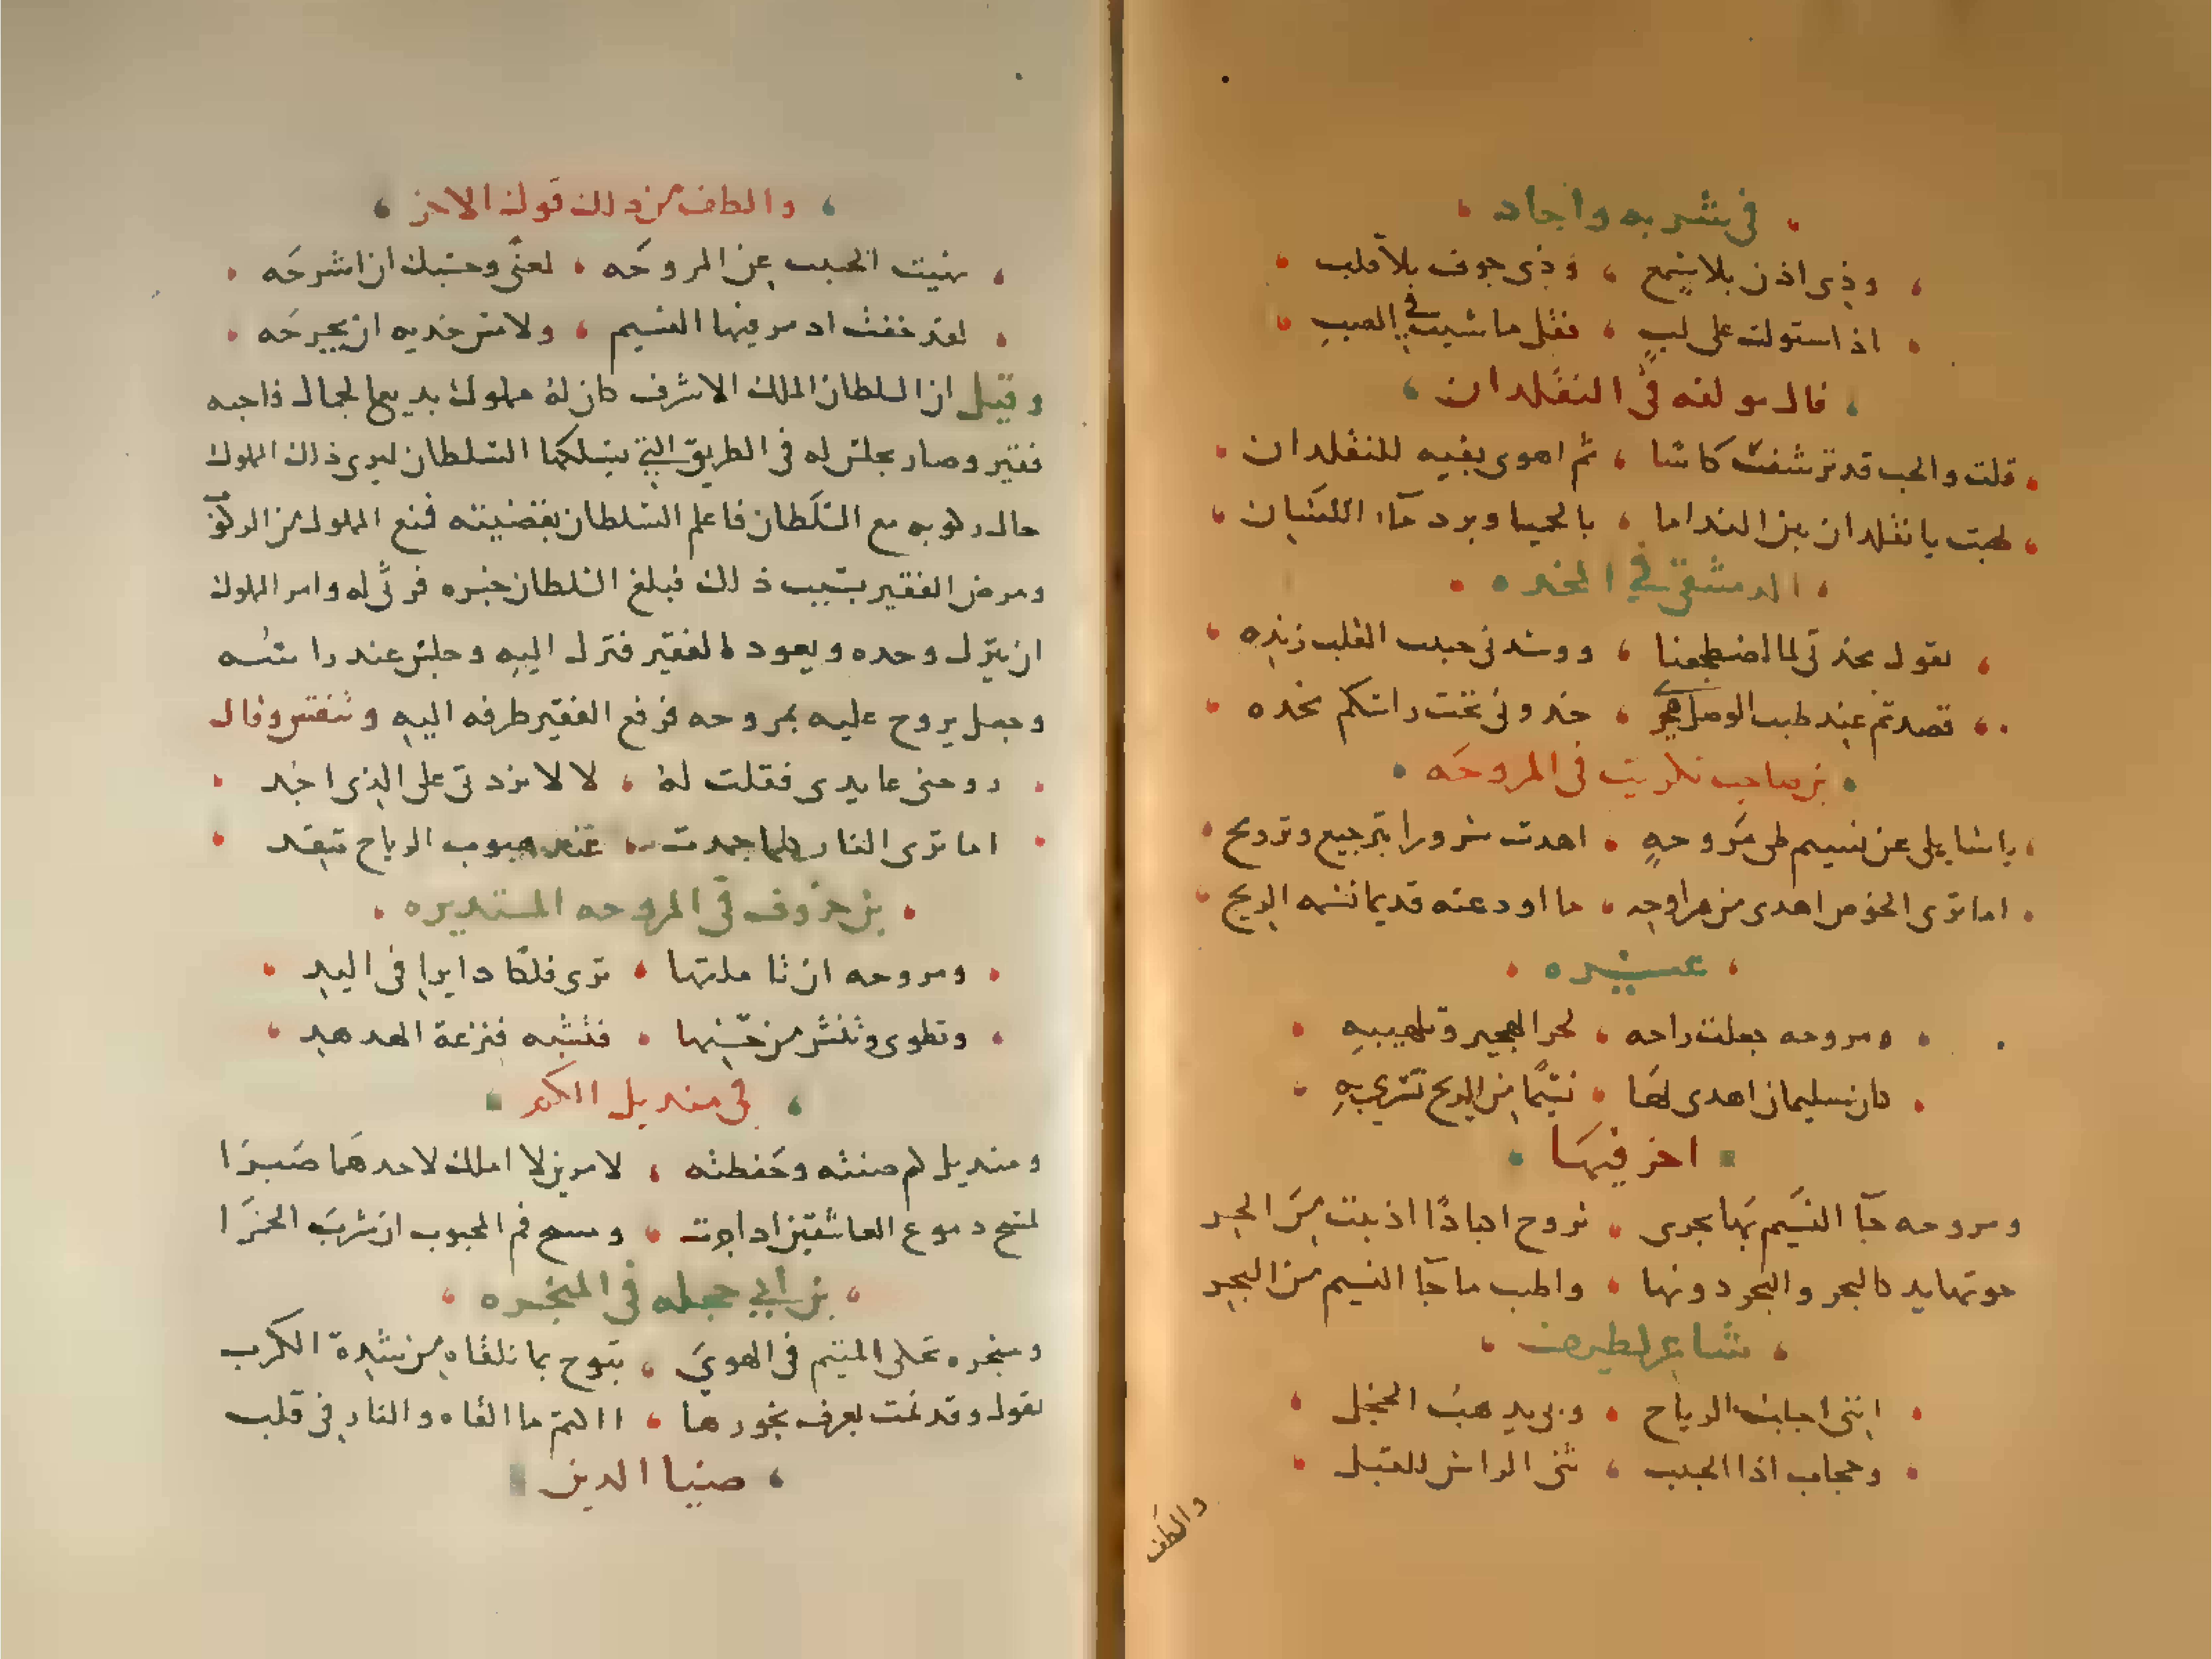 في شربه واجاد
وذي اذن بلا سمع وذي جوف بلا قلب
اذا استولت على لب فقل ما شيت في الصب
قال مولفه في النقلدان
قلت والحب قد ترشفت كاسا ثم اهوى بفيه للنقلدان
طبت يا نقلدان بين النداما بالحميا وبرد ماء اللثبان
الدمشقي في المخده
يقول مخدتي لما اضطجعنا ووسدني حبيب القلب زنده
قصدتم عند طيب الوصل هجري خذوني تحت راسكم مخده
بن صاحب تكريت في المروحه
يا سايلي عن نسيم طي مروحه اهدت سرورا بترجيع وترويح
اما ترى الخوص اهدى من مراوحه ما اودعته قديما نشه الريح
غيره
ومروحه جعلت راحه لحر الهجير وتلهيبه
كان سليمان اهدى لها نسيما من الريح تسري به
اخر فيها
ومروحه جا النسيم بها يجرى تروح اكبادا اذيبت من الحر
حوتها يد كالبحر والبحر دونها واطيب ما جا النسيم من البحر
شاعر لطيف
انني اجلب الرياح وبي يدهب الخجل
وحجاب اذا الحبيب ثنى الراس للقبل
والطف
والطف من ذلك قول الاخر
نهيت الحبيب عن المروحه لعنى وحسبك ان اشرحه
لقد خفت اد مر فيها النسيم ولامس خديه ان يجرحه
وقيل ان السلطان الملك الاشرف كان له مملوك بديع الجمال فاحبه
فقير وصار يجلس له في الطريق التي يسلكها السلطان ليرى ذلك المملوك
حال ركوبه مع السلطان فاعلم السلطان بقضيته فمنع المملوك من الركوب
ومرض الفقير بسبب ذلك فبلغ السلطان خبره فرثى له وامر المملوك
ان ينزل وحده ويعود الفقير فنزل اليه وجلس عند راسه
وجعل يروح عليه بمروحه فرفع الفقير طرفه اليه وتنفس وقال
روحني عايدي فقلت له لا لا تزدتى على الذي اجد
اما ترى النار كلما خمدت عند هبوب الرياح تتقد
بن خروف في المروحه المستديره
ومروحه ان تاملتها ترى فلكا دايرا في اليد
وتطوى وتنشر من حسنها فتشبه قنزعة الهدهد
في منديل الكم
ومنديل كم صنته وحفظته لامرين لا املك لاحدهما صبرا
لمسح دموع العاشقين اذا جرت ومسح فم المحبوب ان شرب الخمرا
بن ابي حجله في المبخره
ومبخره تحكى المتيم في الهوى تبوح بما تلقاه من شدة الكرب
تقول وقد نمت بعرف بخورها االكتم ما القاه والنار في قلب
ضيا الدين